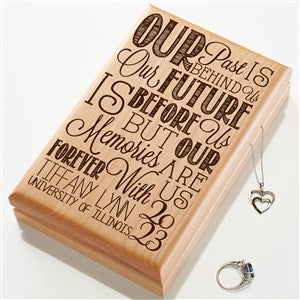 OUR Past IS
BEHIND Us
Our FUTURE
IS BEFORE Us
BUT OUR
Memories ARE
FOREVER With US
TIFFANY LYNN 20
UNIVERSITY OF ILLINOIS 23